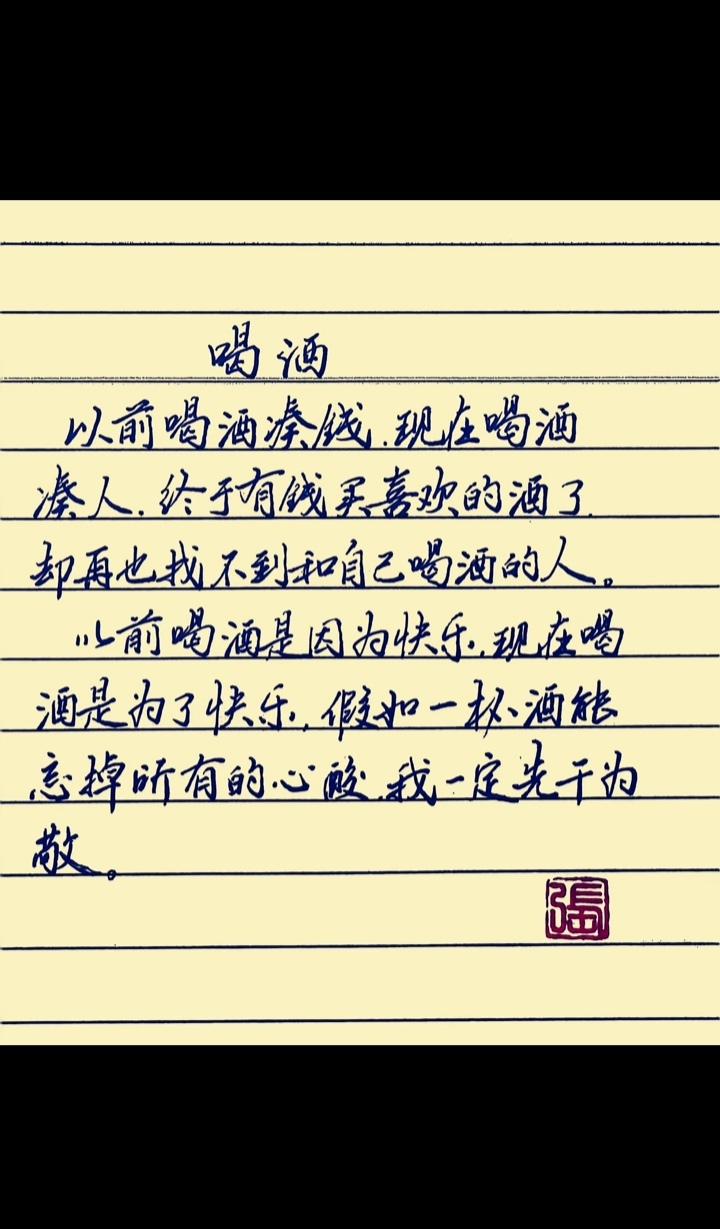 喝酒
以前喝酒凑钱.现在喝酒
凑人.终于有钱买喜欢的酒了.
却再也找不到和自己喝酒的人。
以前喝酒是因为快乐.现在喝
酒是为了快乐.假如一杯酒能
忘掉所有的心酸.我一定先干为
敬。
張